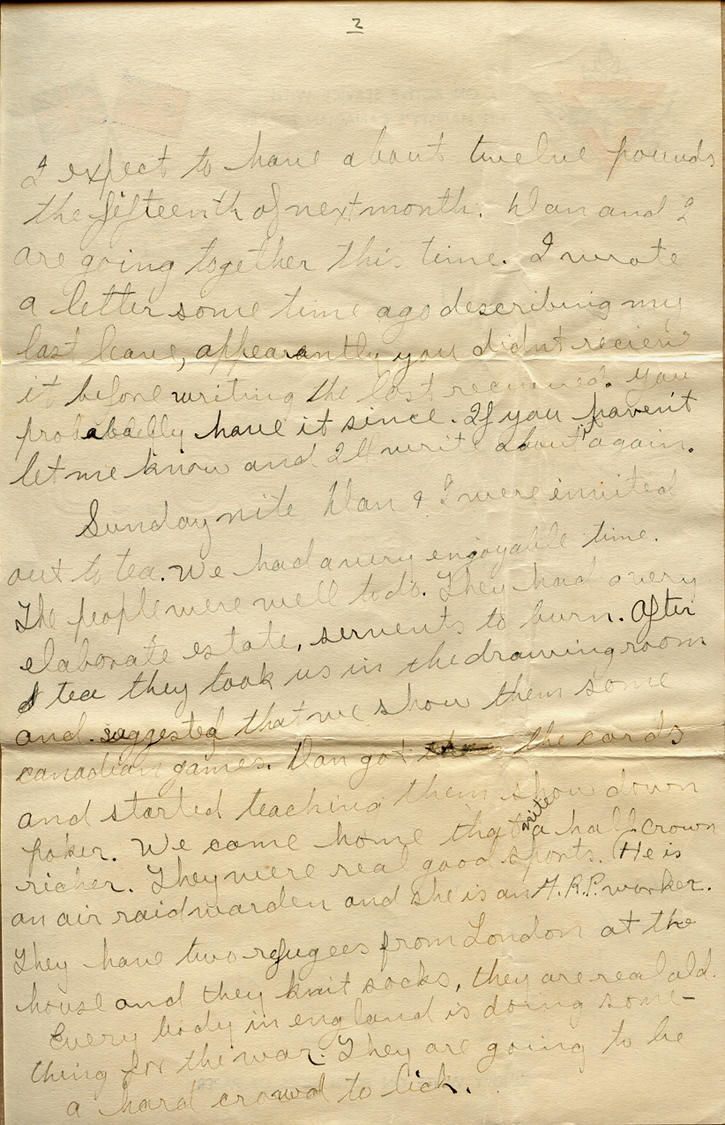 2
I expect to have about twelve pounds
the fifteenth of next month. Dan and I
are going together this time. I wrote
a letter some time ago describing my
last leave, appearantly you didnt recieve
it before writing the last received. You
probabably have it since. If you haven't
let me know and I'll write about it again.
Sunday nite Dan & I were invited
out to tea. We had a very engoyable time.
The people were well to do. They had a very
elaborate estate, servents to burn. After
tea they took us in the drawing room
and suggested that we show them some
canadian games. Dan got the cards
and started teaching them show down
poker. We come home that nite a half crown
richer. They were real good sports. He is
an air raid warden and she is an A.R.P. worker.
They have two refugees from London at the
house and they knit socks, they are real old.
Every body in england is doing some-
thing for the war. They are going to be
a hard crowd to lick.